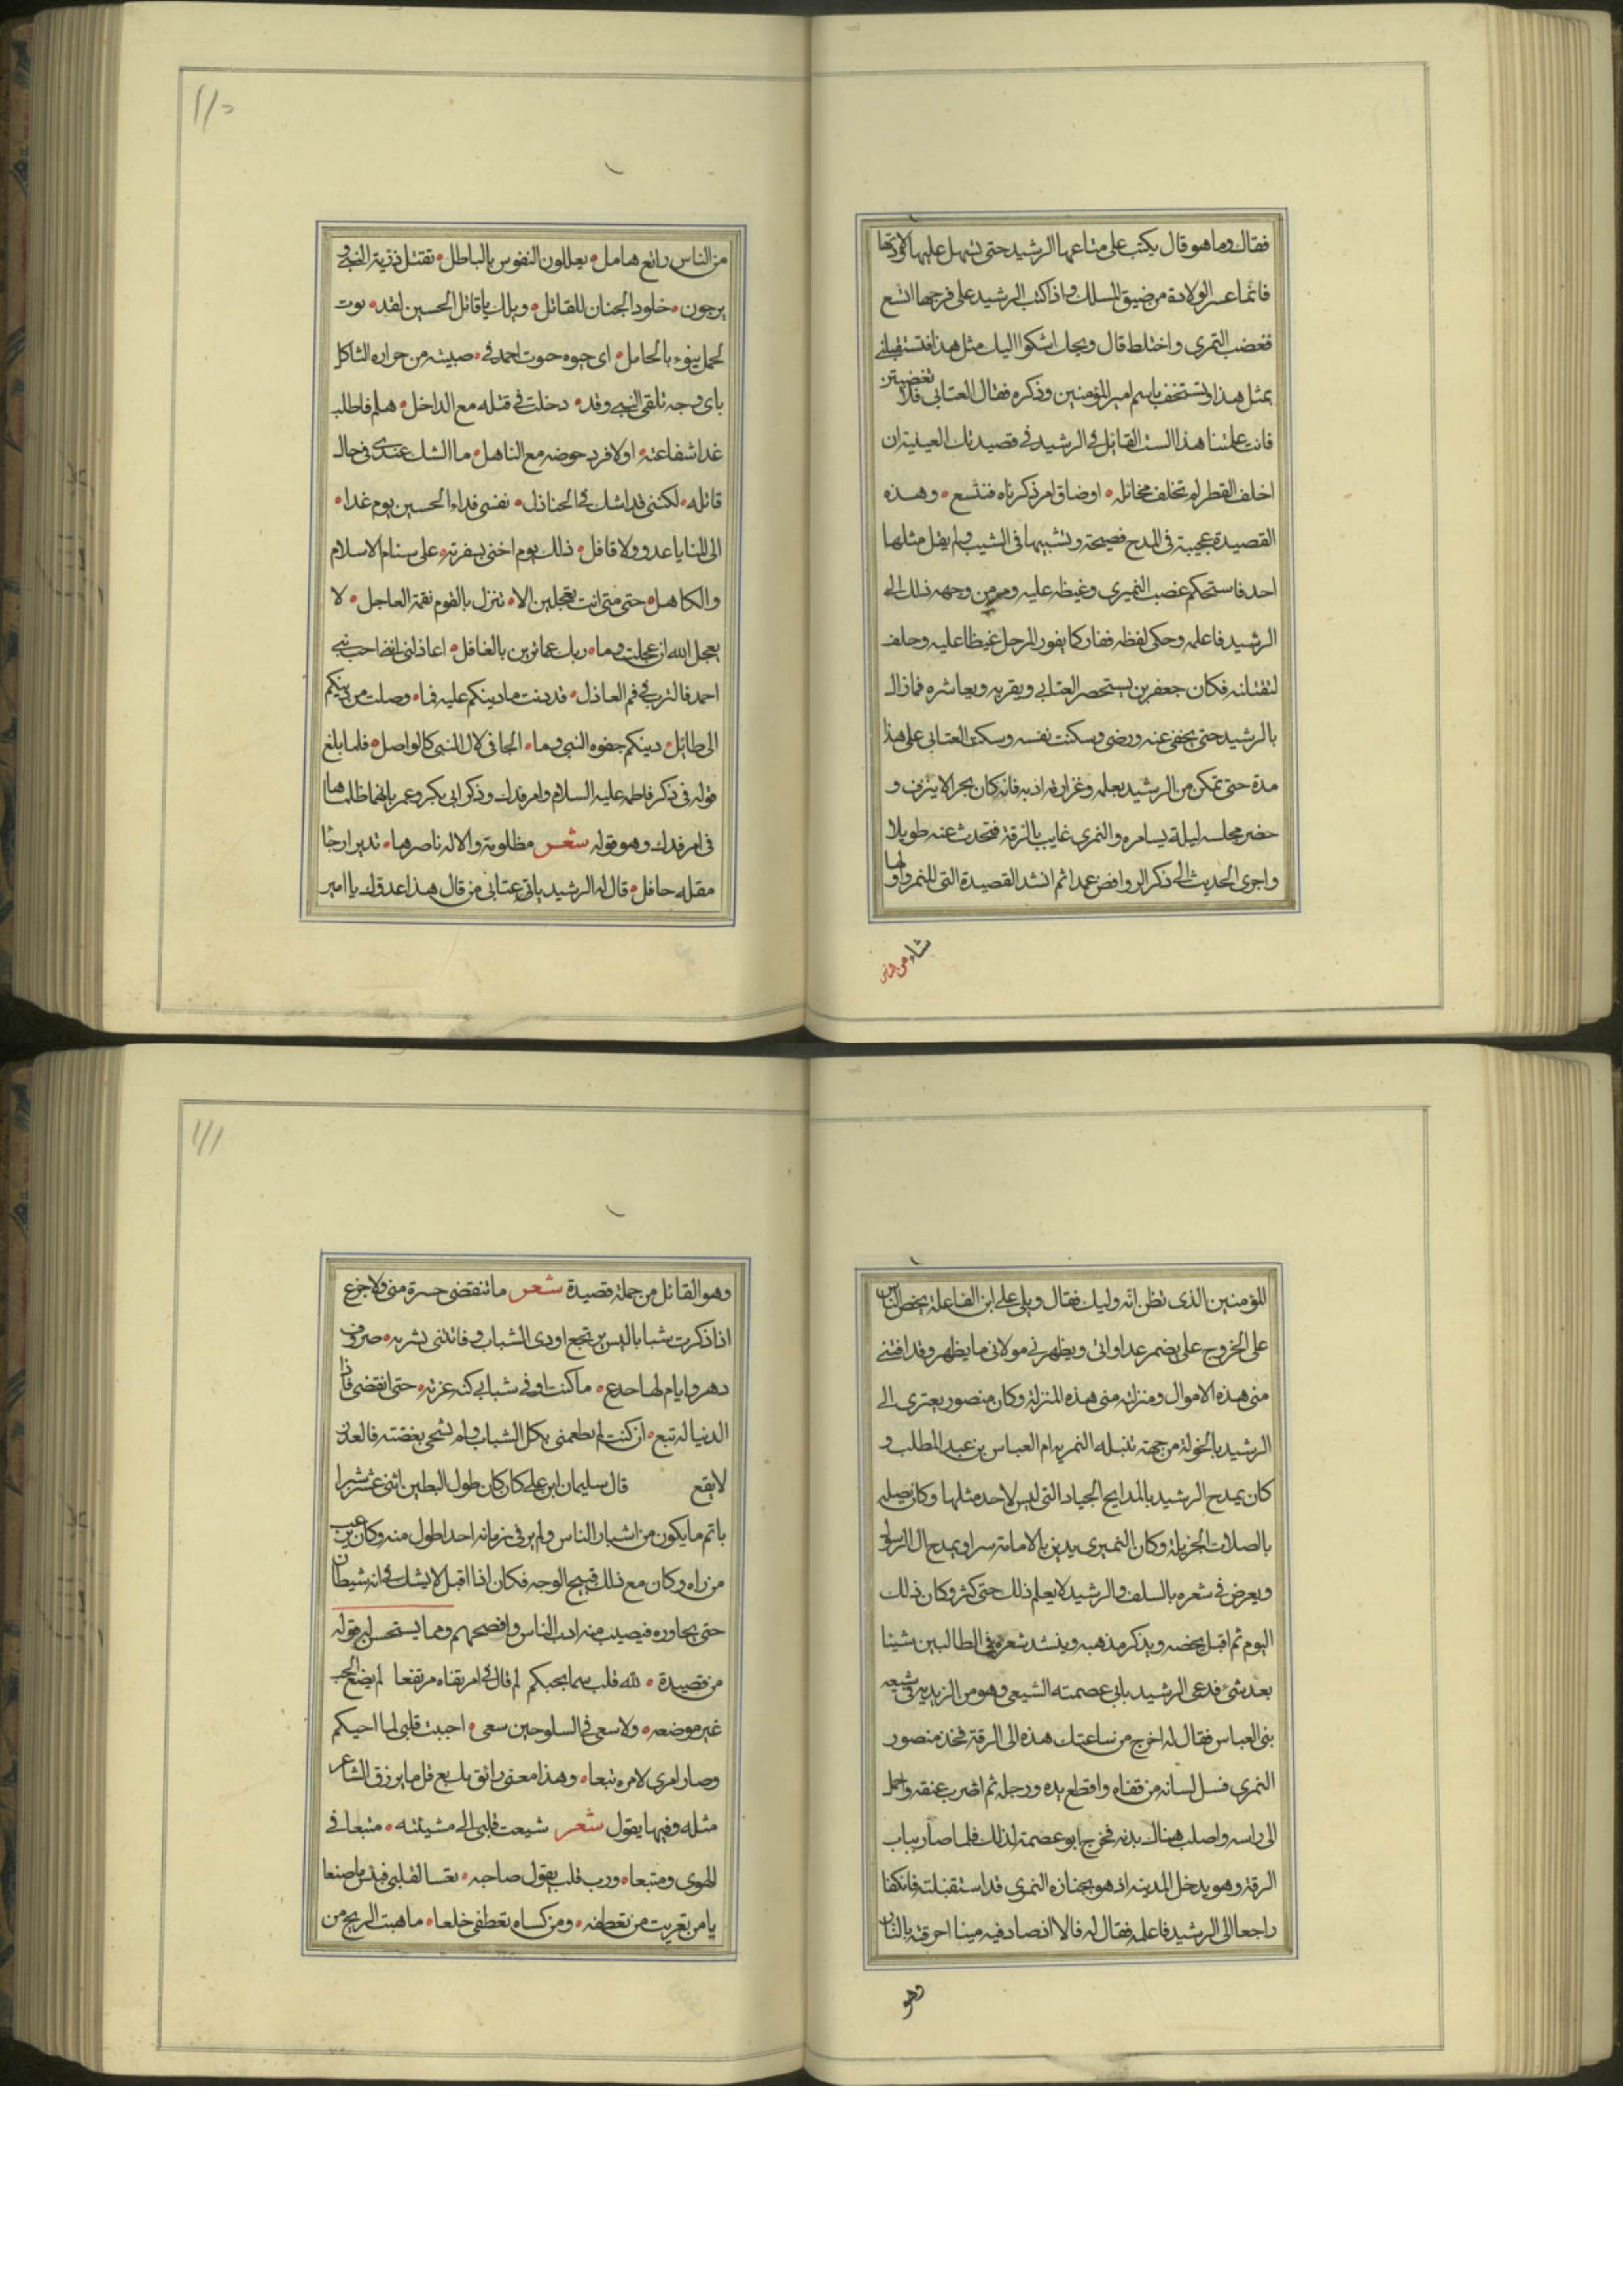 فقال وما هو قال یکتب علی متاعها الرشید حتی تسهل علیها
فانما عسر الولادة من ضیق المسلک واذا کتب الرشید علی فرجها اتسع
فغضب النمری واختلط قال ویحک اشکوا الیک مثل هذا فتستقبلنی
بمثل هذا وتستخف باسم امیر المؤمنین وذکره فقال العتابی فلا تغضبن
فانت علمتنا هذا الست القائل فی الرشید فی قصیدتک العینیة ان
اخلف القطر لم تخلف مخائله • اوضاق امر ذکرناه فتسع • وهذه
القصیدة عجیبة فی المدح فصیحة وتشبیبها فی الشیب ولم یقل مثلها
احد فاستحکم غضب النمیری وغیظه علیه ومر من وجهه ذلک الی
الرشید فاعلمه وحکی لفظه ففار کما یفور المرجل غیظا علیه وحلف
لتقتلنه فکان جعفر بن یستحضر العتابی ویقربه ویعاشره فما زال
بالرشید حتی عنه ورضی وسکنت نفسه وسکت العتابی علی هذا
مدة حتی تمکن من الرشید بعلمه وغزارة ادبه فانه کان بحرا لا ینزف و
حضر مجلسه لیلة یسامره والنمری غایب بالرقة فتحدث عنه طویلا
واجری الحدیث الی ذکر الروافض عمدا ثم انشد القصیدة التی للنمر واولها
شاء من الناس
من الناس راتع هامل • یعللون النفوس بالباطل • تقتل ذریة النبی و
یرجون • خلود الجنان للقاتل • ویلک یا قاتل الحسین لقد • بوت
لحمل ینوء بالحامل • ای حبوه حبوت احمد فی • من حراره الثاکل
بای وجه تلقی النبی وقد • دخلت فی قتله مع الداخل • هلم فاطلب
غدا شفاعته • اولا فرد حوضه مع الناهل • ما الشک عندی فی حال
قاتله • لکننی قد اشک فی الخاذل • نفسی فداء الحسین یوم غدا •
الی المنایا عدو ولا قافل • ذلک یوم اخنی بشفرته • علی سنام الاسلام
والکاهل • حتی متی انت تعجلین الا • تنزل بالقوم نقمة العاجل • لا
یعجل الله ان عجلت وما • ربک عما ترین بالغافل • اعاذلی انی احب بنی
احمد فالترب فی فم العاذل • قد دنت ما دینکم علیه فما • وصلت من دینکم
الی طائل • دینکم جفوه النبی وما • الجافی لال النبی کالواصل • فلما بلغ
قوله فی ذکر فاطمه علیه السلام وامر فدک وذکر ابی بکر وعمر بانهما ظلماها
فی امر فدک وهو قوله شعر مظلومة والاله ناصرها • تدیر ارجا
مقله حافل • قال له الرشید یاتی عتابی من قال هذا عدوک یا امیر
المؤمنین الذی تظن انه ولیک فقال ویلی علی ابن الفاعلة یحض الناس
علی الخروج علی یضمر عداواتی ویظهر فی موالاتی ما یظهر وقد افتنی
منی هذه الاموال ومنزلته منی هذه المنزلة وکان منصور یعتزی الی
الرشید بالخولة من جهة نتیله النمریه ام العباس بن عبد المطلب و
کان یمدح الرشید بالمدایح الجیاد التی لیس لاحد مثلها وکان یصله
بالصلات الجزیلة وکان النمیری یدین بالامامة سرا ویمدح ال الرسول
ویعرض فی شعره بالسلف والرشید لا یعلم ذلک حتی کثر وکان ذلک
الیوم ثم اقبل یحضه ویذکر مذهبه وینشد شعره فی الطالبین شیئا
بعد شئ فدعی الرشید بابی عصمته الشیعی وهو من الزیدیه شیعه
بنی العباس فقال له اخرج من ساعتک هذه الی الرقة فخذ منصور
النمری فسل لسانه من قفاه واقطع یده ورجله ثم اضرب عنقه واحمل
الی راسه واصلب هناک بدنه فخرج ابو عصمة لذلک فلما صار بباب
الرقة وهو یدخل المدینه اذ هو بجنازه النمری قد استقبلته فانکفا
راجعا الی الرشید فاعلمه فقال له فالا اذ صادفته میتا احرقته بالنار
وهو
وهو القائل من جملة قصیدة شعر ما تنقضی حسرة منی ولا جزع
اذا ذکرت شبابا لیس یرتجع اودی الشباب وفاتتنی بشربه • صروف
دهر وایام لها خدع • ما کنت اوفی شبابی کنه عزته • حتی انقضی فاذا
الدنیا له تبع • ان کنت لم تطعمنی بکل الشباب ولم تشجی بغصته فالعذر
لا یقع قال سلیمان ابن علی کان کان طول البطین اثنی عشر شبرا
باتم ما یکون من اشبار الناس ولم یر فی زمانه احدا اطول منه وکان
من راه وکان مع ذلک قبیح الوجه فکان اذا اقبل لا یشک فی انه شیطان
حتی یحاوره فیصیب منه ادب الناس وافصحهم ومما یستحسن له قوله
من قصیدة • لله قلب سما بحبکم لم قال فی امر تقناه مرتفعا لم یضع الحب
غیر موضعه • ولا سعی فی السلو حین سعی • احببت قلبی لما احبکم
وصار امری لامره تبعا • وهذا معنی رائق بدیع قل ما یرزق الشاعر
مثله وفیها یقول شعر شیعت قلبی الی مشیئته • متبعا فی
الهوی ومتبعا • ورب قلب یقول صاحبه • تعسا لقلبی فبئس ما صنعا
یا من تعریت من تعطفه • ومن کساه تعطفی خلعا • ما هبت الریح من